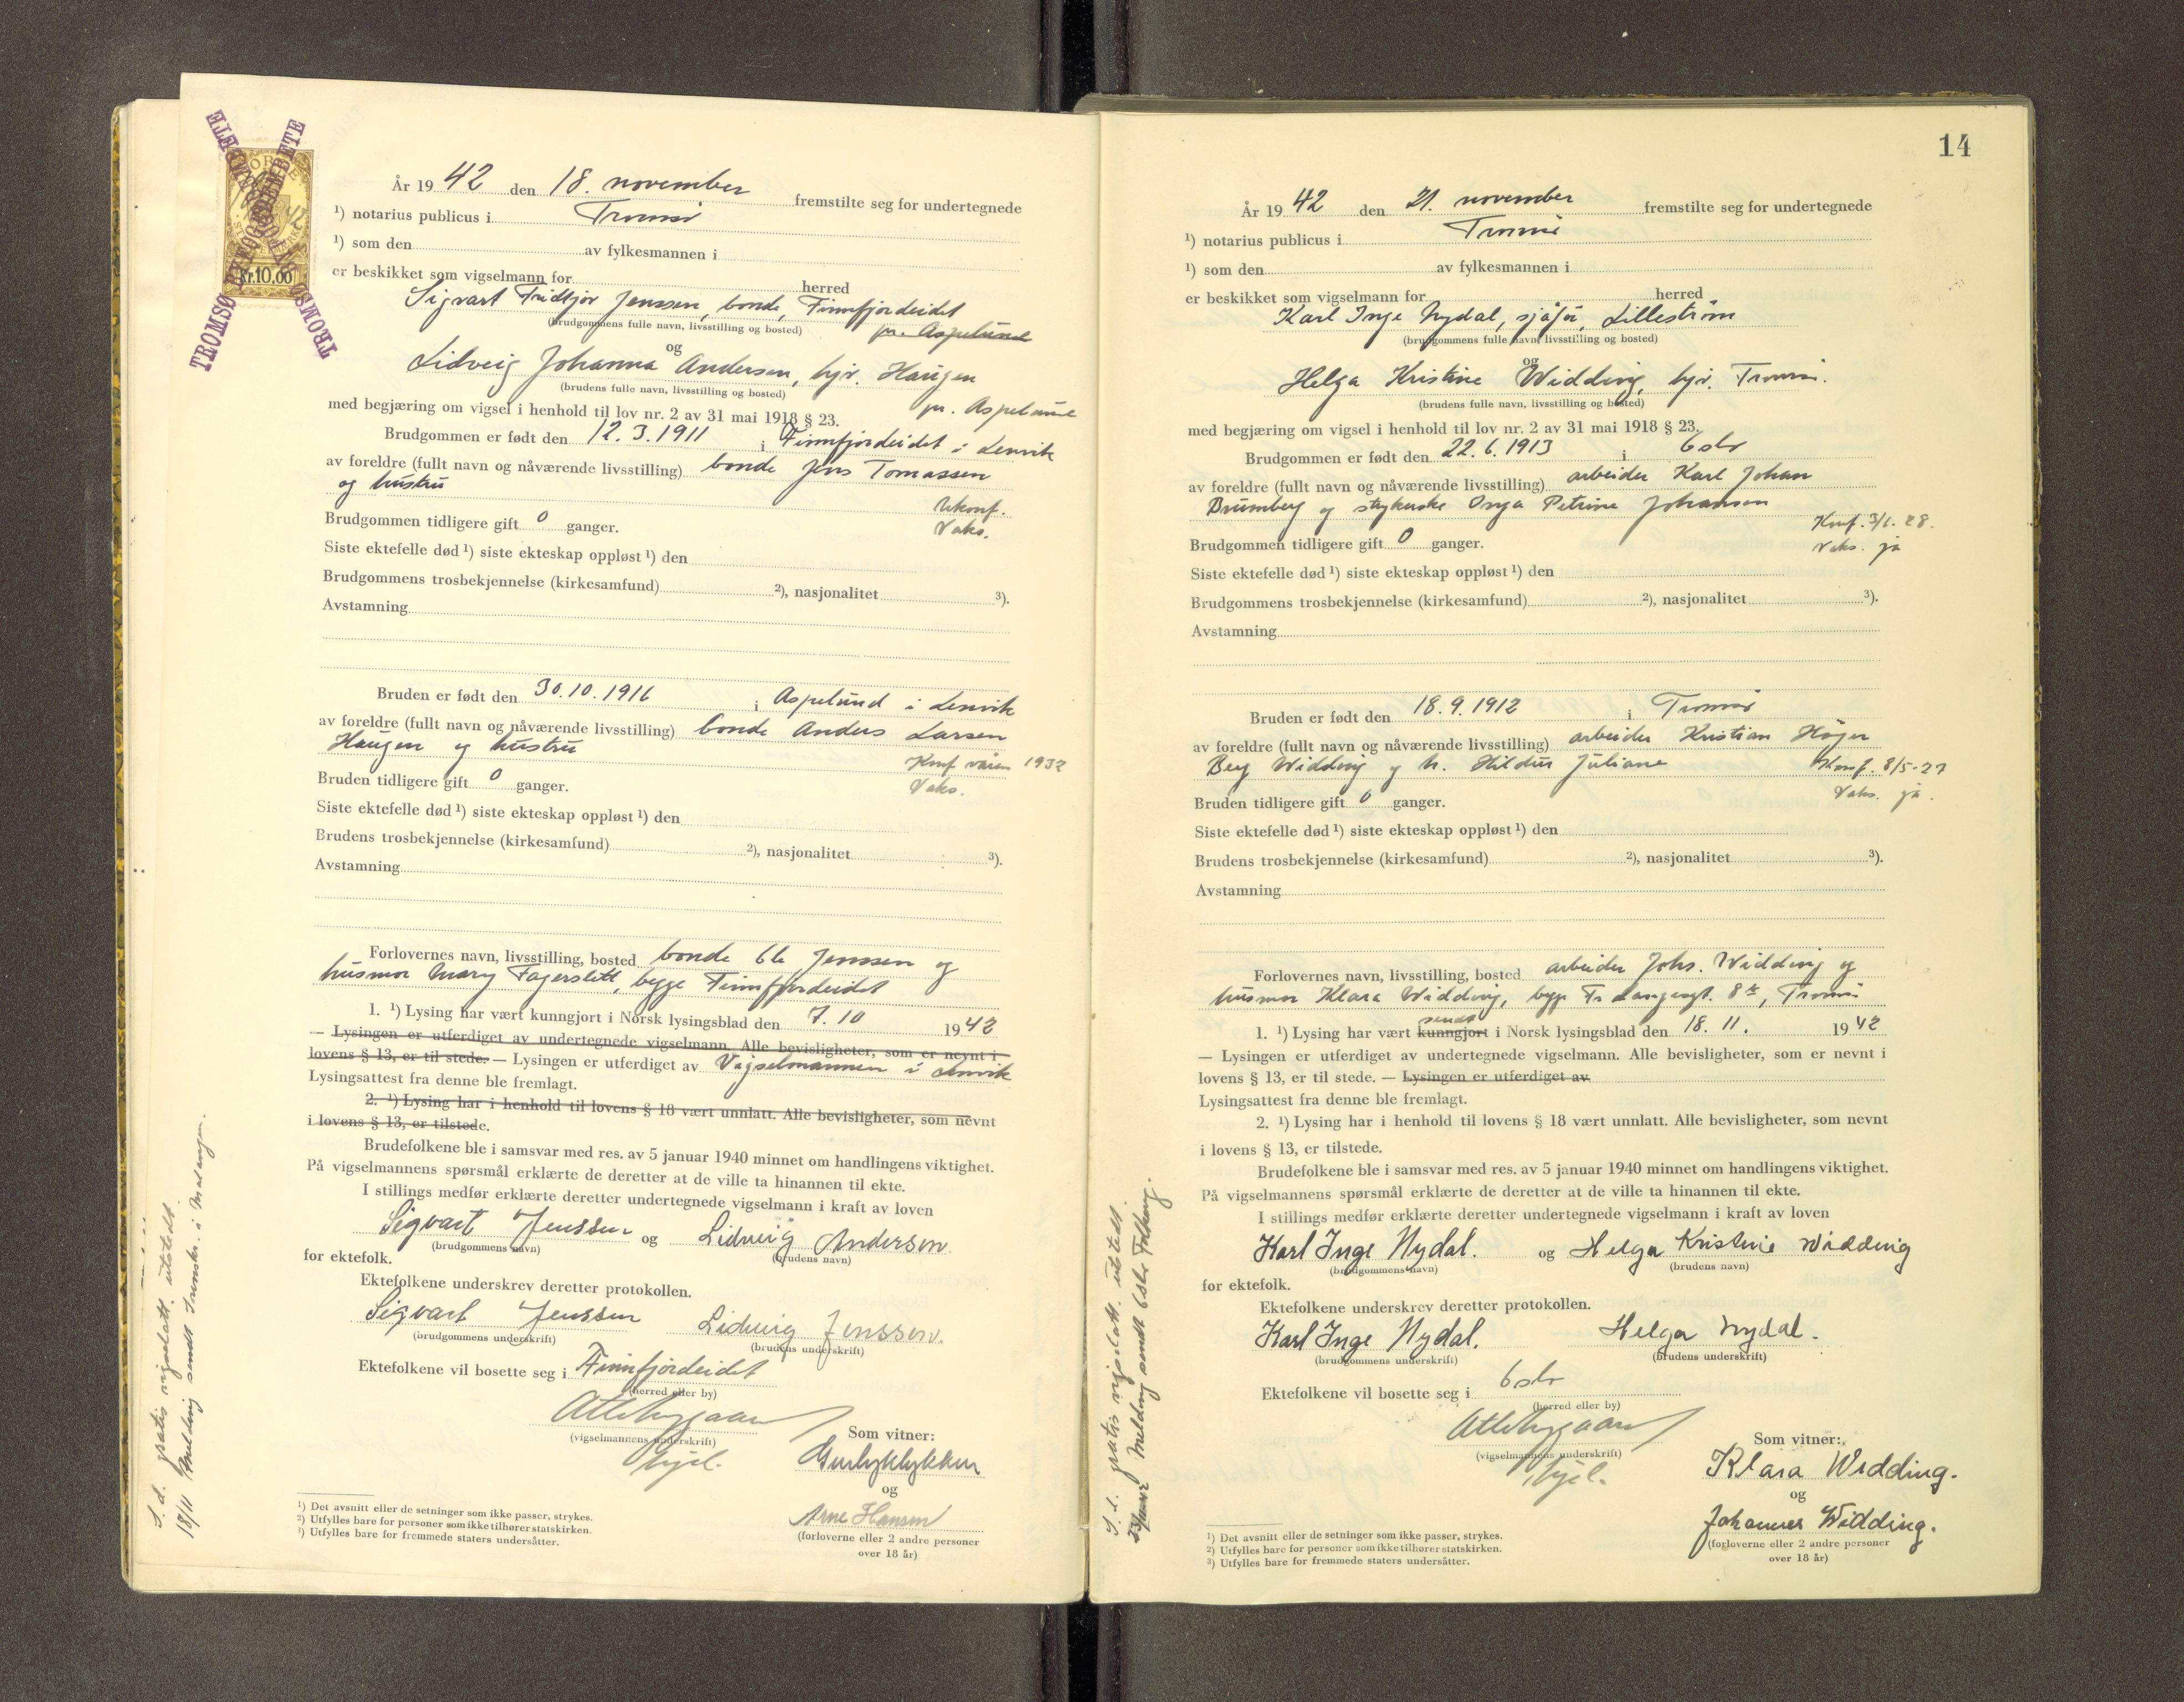 TROMSØ
Kr. 10,00
År 19 42 den 18. november fremstilte seg for undertegnede
¹) notarius publicus i Tromsø
¹) som den av fylkesmannen i
er beskikket som vigselmann for herred
Sigvart Fridtjov Jenssen, bonde, Finnfjordeidet
(brudgommens fulle navn, livsstilling og bosted)
pr. Aspelund
og
Lidveig Johanna Andersen, hjv. Haugen
(brudens fulle navn, livsstilling og bosted)
pr. Aspelund
med begjæring om vigsel i henhold til lov nr. 2 av 31 mai 1918 § 23.
Brudgommen er født den 12.3.1911 i Finnfjordeidet i Lenvik
av foreldre (fullt navn og nåværende livsstilling) bonde Jens Tomassen
og hustru
Ukonf.
Brudgommen tidligere gift 0 ganger.
Vaks.
Siste ektefelle død ¹) siste ekteskap oppløst ¹) den
Brudgommens trosbekjennelse (kirkesamfund) ²), nasjonalitet ³).
Avstamning
Bruden er født den 30.10.1916 i Aspelund i Lenvik
av foreldre (fullt navn og nåværende livsstilling) bonde Anders Larsen
Haugen og hustru
Konf våren 1932
Bruden tidligere gift 0 ganger.
Vaks.
Siste ektefelle død ¹) siste ekteskap oppløst ¹) den
Brudens trosbekjennelse (kirkesamfund) ²), nasjonalitet ³).
Avstamning
Forlovernes navn, livsstilling, bosted bonde Ole Jenssen og
husmor Mary Fagerslett, begge Finnfjordeidet
1. ¹) Lysing har vært kunngjort i Norsk lysingsblad den 7.10 19 42
— Lysingen er utferdiget av undertegnede vigselmann. Alle bevisligheter, som er nevnt i
lovens § 13, er til stede. — Lysingen er utferdiget av Vigselmannen i Lenvik
Lysingsattest fra denne ble fremlagt.
2. ¹) Lysing har i henhold til lovens § 18 vært unnlatt. Alle bevisligheter, som nevnt
i lovens § 13, er tilstede.
Brudefolkene ble i samsvar med res. av 5 januar 1940 minnet om handlingens viktighet.
På vigselmannens spørsmål erklærte de deretter at de ville ta hinannen til ekte.
I stillings medfør erklærte deretter undertegnede vigselmann i kraft av loven
Sigvart Jenssen og Lidveig Andersen
(brudgommens navn) (brudens navn)
for ektefolk.
Ektefolkene underskrev deretter protokollen.
Sigvart Jenssen Lidveig Jenssen.
(brudgommens underskrift) (brudens underskrift)
Ektefolkene vil bosette seg i Finnfjordeidet
(herred eller by)
(vigselmannens underskrift)
hjel.
Som vitner:
og
Arne Hansen
(forloverne eller 2 andre personer
over 18 år)
¹) Det avsnitt eller de setninger som ikke passer, strykes.
²) Utfylles bare for personer som ikke tilhører statskirken.
³) Utfylles bare for fremmede staters undersåtter.
S. d. gratis vigselatt. utstedt.
18/11 Melding sendt i Malangen.
14
År 19 42 den 21. november fremstilte seg for undertegnede
¹) notarius publicus i Tromsø
¹) som den av fylkesmannen i
er beskikket som vigselmann for herred
Karl Inge Nydal, sjåfør, Lillestrøm
(brudgommens fulle navn, livsstilling og bosted)
og
Helga Kristine Widding, hjv. Tromsø.
(brudens fulle navn, livsstilling og bosted)
med begjæring om vigsel i henhold til lov nr. 2 av 31 mai 1918 § 23.
Brudgommen er født den 22.6.1913 i Oslo
av foreldre (fullt navn og nåværende livsstilling) arbeider Karl Johan
Brumberg og strykerske Inga Petrine Johansen
Konf. 3/6. 28.
Brudgommen tidligere gift 0 ganger.
Vaks. ja
Siste ektefelle død ¹) siste ekteskap oppløst ¹) den
Brudgommens trosbekjennelse (kirkesamfund) ²), nasjonalitet ³).
Avstamning
Bruden er født den 18.9.1912 i Tromsø
av foreldre (fullt navn og nåværende livsstilling) arbeider Kristian Høyer
Berg Widding og h. Hildur Juliane
Konf. 8/5-27
Bruden tidligere gift 0 ganger.
Vaks. ja.
Siste ektefelle død ¹) siste ekteskap oppløst ¹) den
Brudens trosbekjennelse (kirkesamfund) ²), nasjonalitet ³).
Avstamning
Forlovernes navn, livsstilling, bosted arbeider Johs. Widding og
husmor Klara Widding, begge Fr. Langesgt. 8, Tromsø
1. ¹) Lysing har vært kunngjort sendt i Norsk lysingsblad den 18. 11. 19 42
— Lysingen er utferdiget av undertegnede vigselmann. Alle bevisligheter, som er nevnt i
lovens § 13, er til stede. — Lysingen er utferdiget av
Lysingsattest fra denne ble fremlagt.
2. ¹) Lysing har i henhold til lovens § 18 vært unnlatt. Alle bevisligheter, som nevnt
i lovens § 13, er tilstede.
Brudefolkene ble i samsvar med res. av 5 januar 1940 minnet om handlingens viktighet.
På vigselmannens spørsmål erklærte de deretter at de ville ta hinannen til ekte.
I stillings medfør erklærte deretter undertegnede vigselmann i kraft av loven
Karl Inge Nydal. og Helga Kristine Widding
(brudgommens navn) (brudens navn)
for ektefolk.
Ektefolkene underskrev deretter protokollen.
Karl Inge Nydal. Helga Nydal.
(brudgommens underskrift) (brudens underskrift)
Ektefolkene vil bosette seg i Oslo
(herred eller by)
(vigselmannens underskrift)
hjel.
Som vitner:
Klara Widding.
og
Johannes Widding.
(forloverne eller 2 andre personer
over 18 år)
¹) Det avsnitt eller de setninger som ikke passer, strykes.
²) Utfylles bare for personer som ikke tilhører statskirken.
³) Utfylles bare for fremmede staters undersåtter.
S. d. gratis vigselatt. utstedt.
Melding sendt Oslo Folkereg.